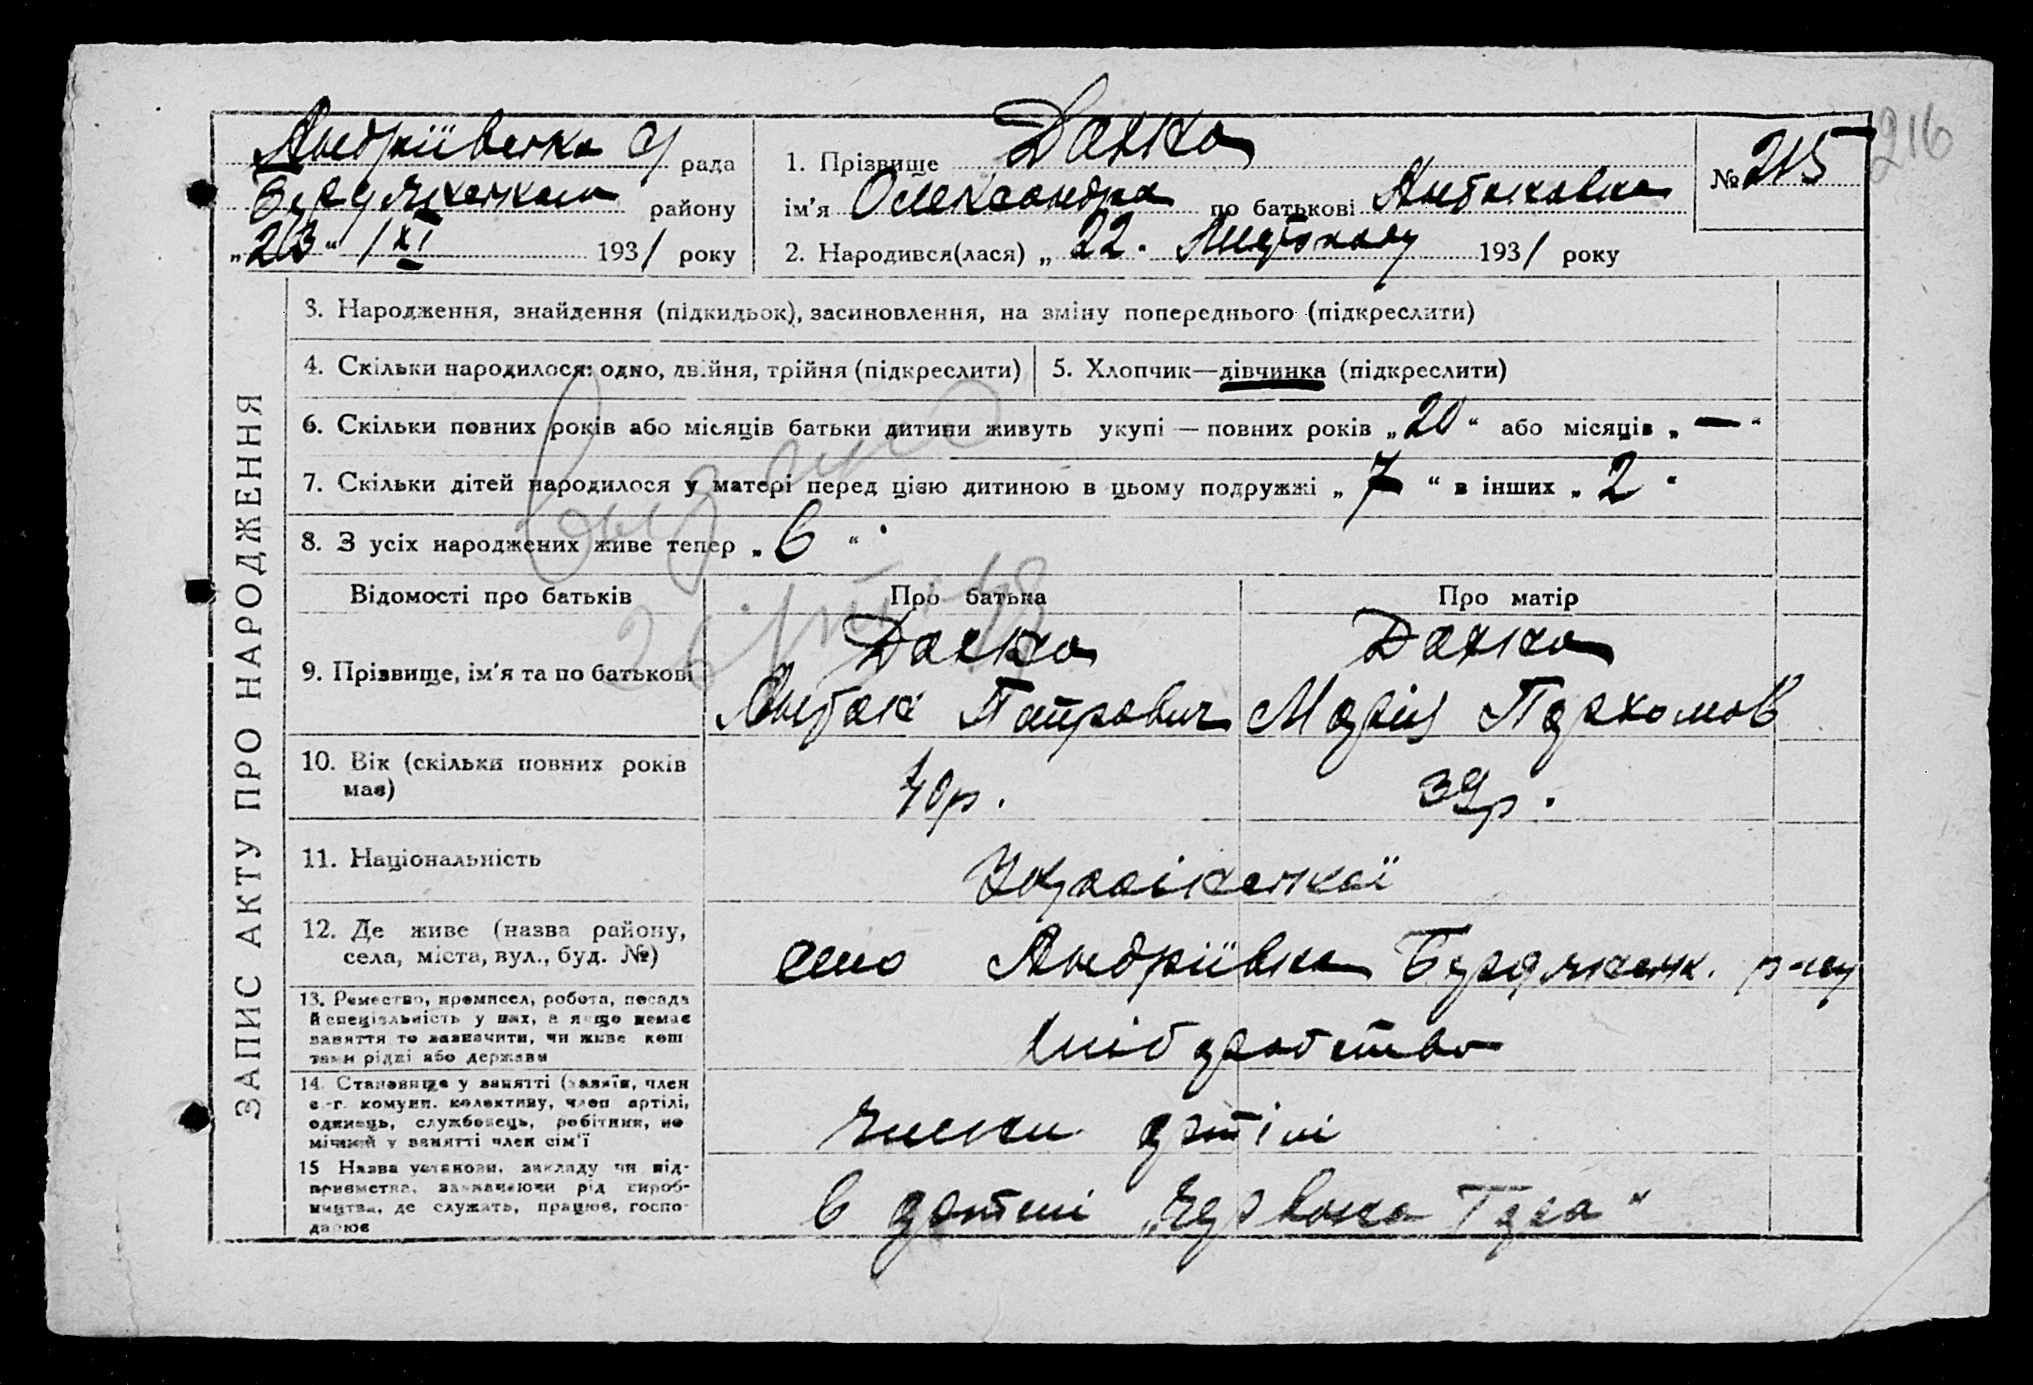 Андріївська с/рада
Бердянського району
"23" /XI 1931 року
1. Прізвище Данко
ім'я Олександра по батькові Антонівна
2. Народився(лася) "22. Листопаду 1931 року
№ 215
216
ЗАПИС АКТУ ПРО НАРОДЖЕННЯ
3. Народження, знайдення (підкидьок), засиновлення, на зміну попереднього (підкреслити)
4. Скільки народилося: одно, двійня, трійня (підкреслити)
5. Хлопчик—дівчинка (підкреслити)
6. Скільки повних років або місяців батьки дитини живуть укупі — повних років „20“ або місяців „—“
7. Скільки дітей народилося у матері перед цією дитиною в цьому подружжі „7“ в інших „2“
8. З усіх народжених живе тепер „6“
Відомості про батьків
Про батька
Про матір
9. Прізвище, ім'я та по батькові
Данко
Антон Петрович
Данко
Марія Пархомов
10. Вік (скільки повних років має)
40р.
39р.
11. Національність
Української
12. Де живе (назва району,
села, міста, вул., буд. №)
село Андріївка Бердянськ. р-ну
13. Ремество, промисел, робота, посада
й спеціяльність у них, а якщо немає
заняття то зазначити, чи живе кош
тами рідні або держави
хлібробство
14. Становище у занятті (хазяїн, член
с.-г. комуни. колективу, член артілі,
одинець, службовець, робітник, по
мічний у занятті член сім'ї
члени артілі
15 Назва установи, закладу чи під-
приємства, зазначаючи рід вироб-
ництва, де служать, працює, госпо-
дарює
в артілі „Червона Гора"